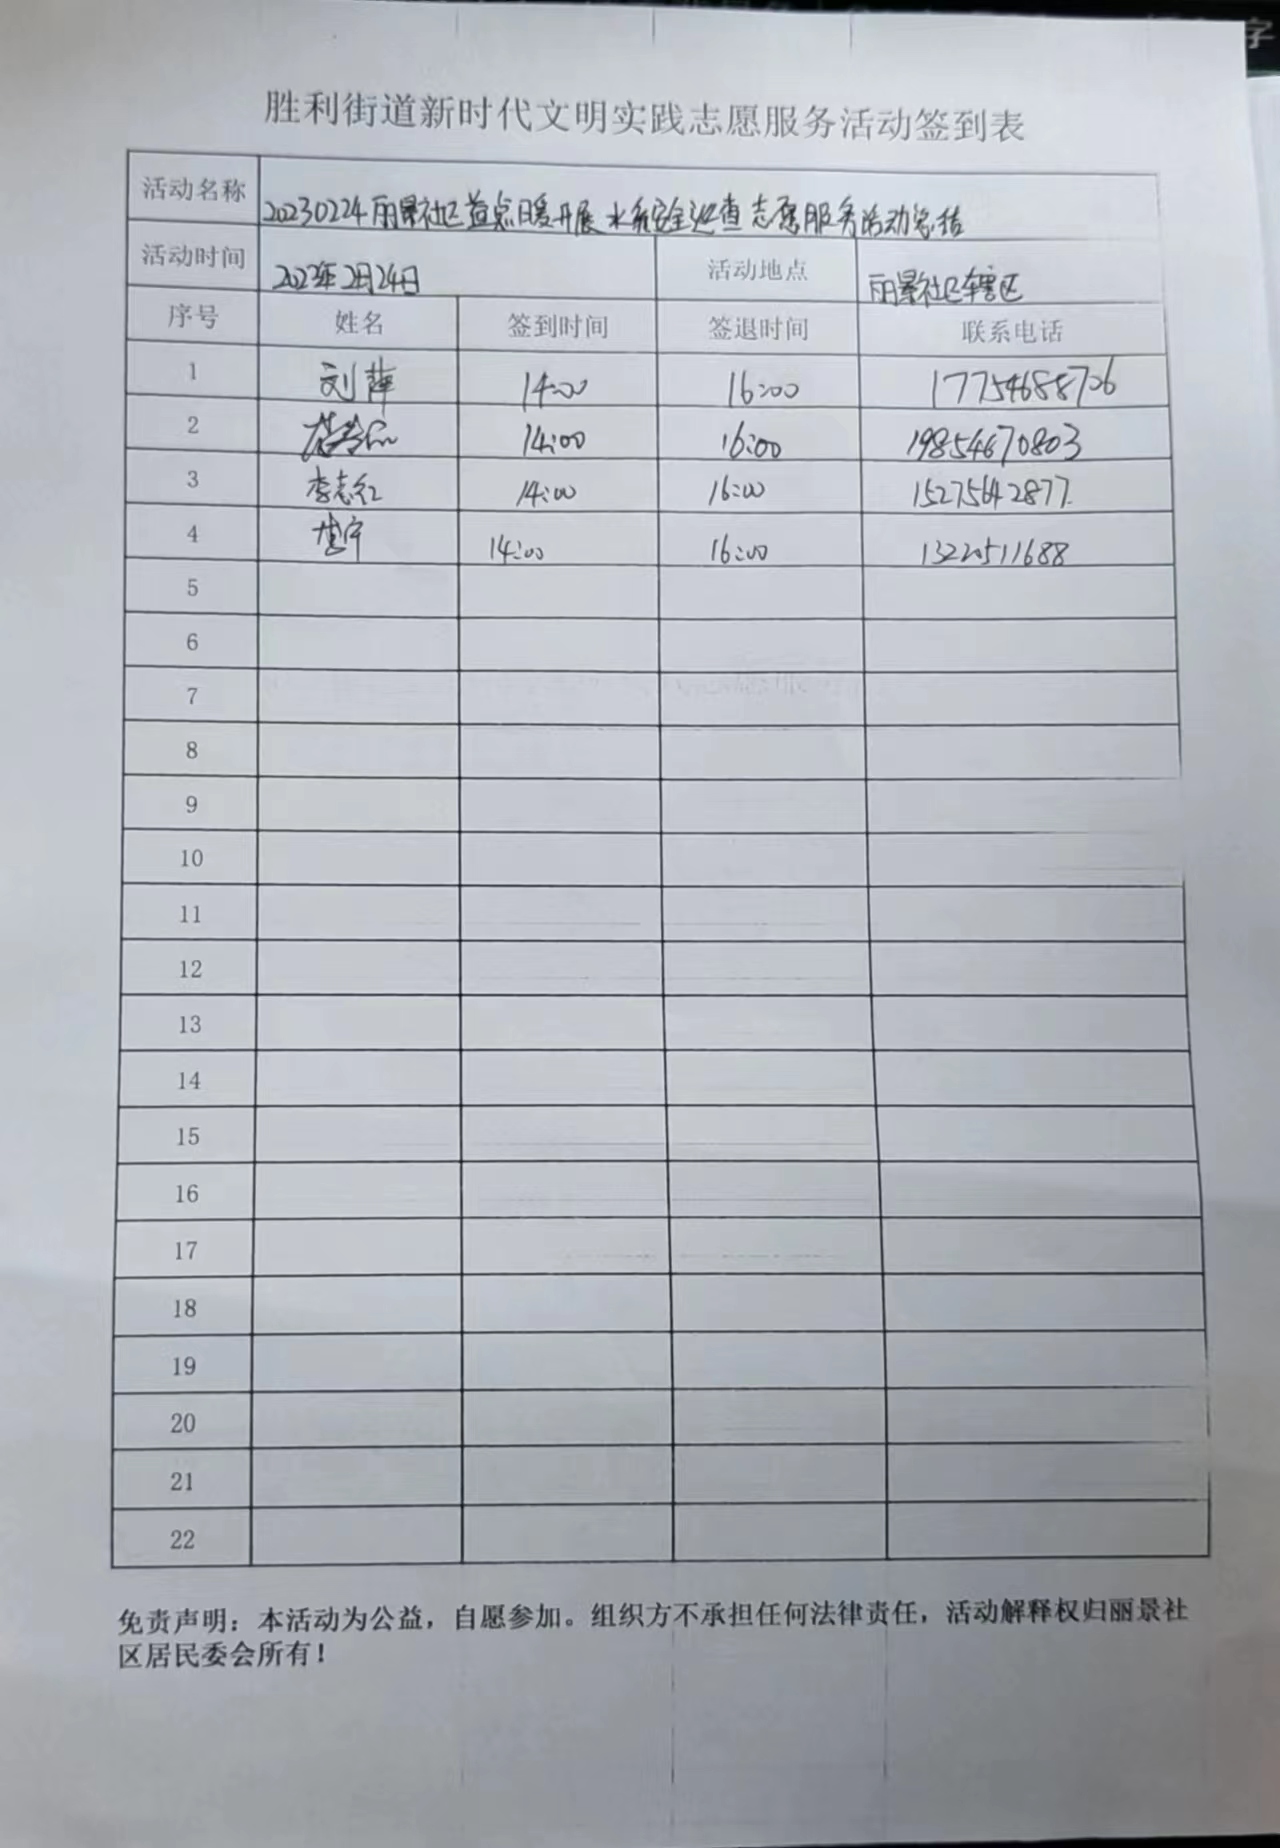 胜利街道新时代文明实践志愿服务活动签到表
活动名称 20230224丽景社区益点暖开展水系安全巡查志愿服务活动总结
活动时间 2023年2月24日 活动地点 丽景社区辖区
序号 姓名 签到时间 签退时间 联系电话
1 刘萍 14:00 16:00 17754688706
2 14:00 16:00 19854670803
3 李志红 14:00 16:00 15275642877
4 14:00 16:00 13220511688
5
6
7
8
9
10
11
12
13
14
15
16
17
18
19
20
21
22
免责声明：本活动为公益，自愿参加。组织方不承担任何法律责任，活动解释权归丽景社
区居民委会所有！